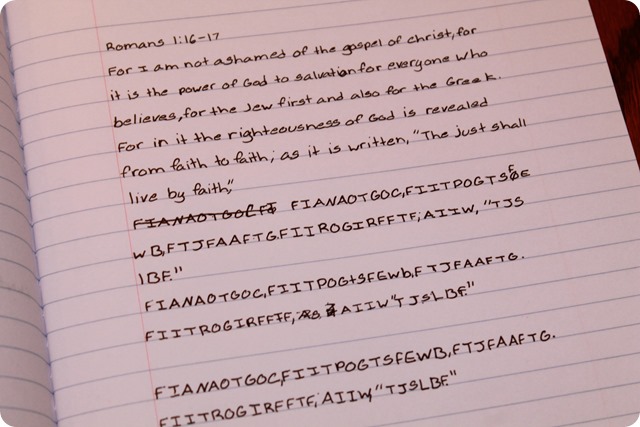 Romans 1:16-17
For I am not ashamed of the gospel of Christ, for
it is the power of God to salvation for everyone who
believes, for the Jew first and also for the Greek.
For in it the righteousness of God is revealed
from faith to faith; as it is written, "The just shall
live by faith."
FIANAOTGOC, FIITPOGTSFE
WB, FTJFAAFTG. FIITROGIRFFTF; AIIW, "TJS
LBF."
FIANAOTGOC, FIITPOGtSFEWb, FTJFAAFTG.
FIITROGIRFFTF; AIIW "TJSLBF."
FIANAOTGOC, FIITPOGTSFEWB, FTJFAAFTG.
FIITROGIRFFTF; AIIW, "TJSLBF."